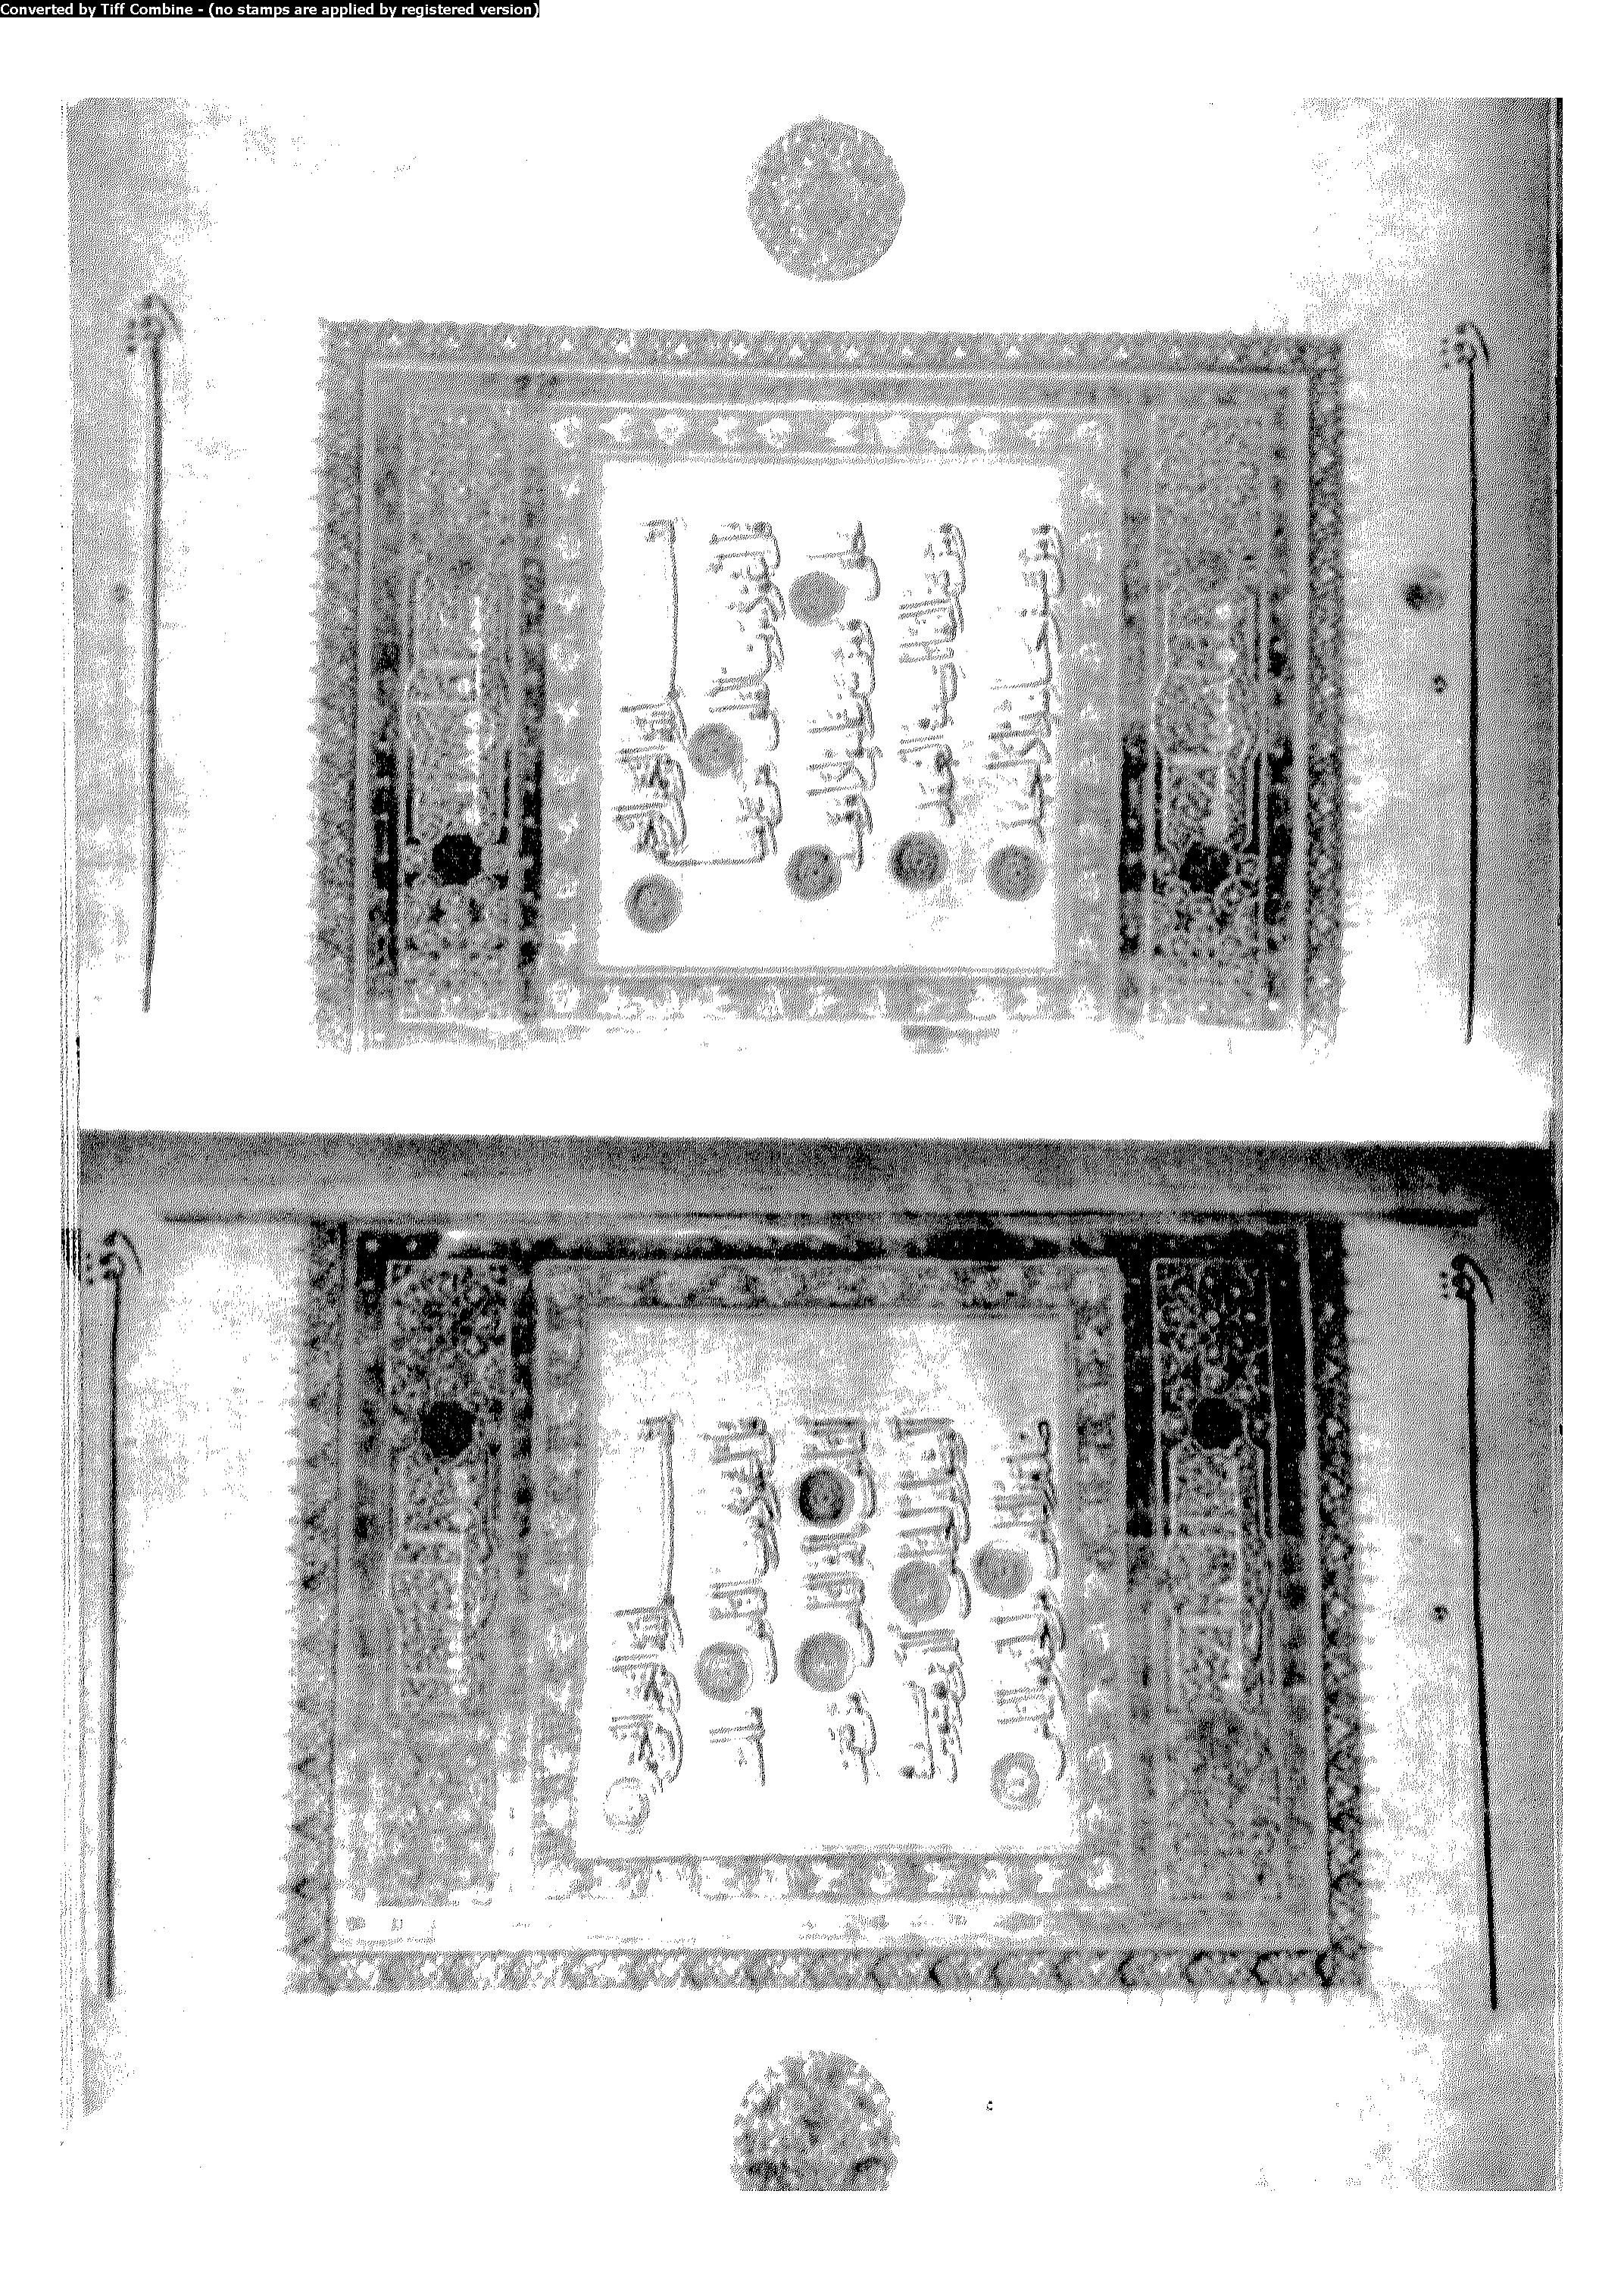 Converted by Tiff Combine - (no stamps are applied by registered version)
وقف
بسم الله الرحمن الرحيم
قل اعوذ برب الفلق من شر
ما خلق ومن شر غاسق اذا وقب
ومن شر النفاثات في العقد
ومن شر حاسد اذا حسد
وقف
وقف
بسم الله الرحمن الرحيم
قل اعوذ برب الناس ملك
الناس اله الناس من شر
الوسواس الخناس الذي يوسوس في
صدور الناس من الجنة والناس
وقف